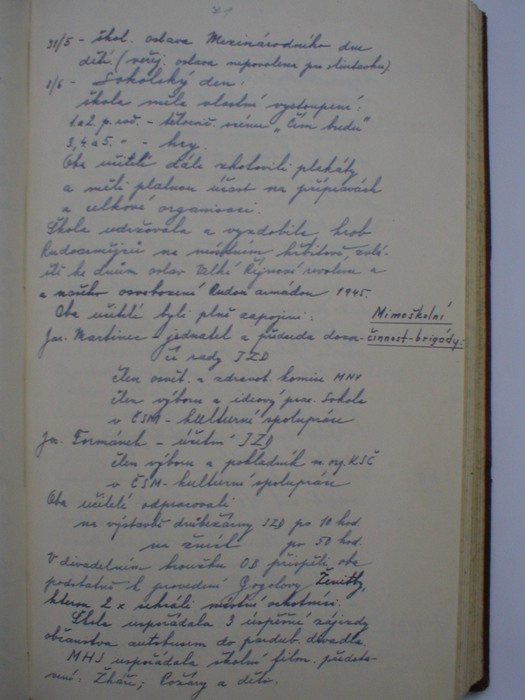 31/5 - škol. oslava Mezinárodního dne
dětí. (veřej. oslava nepovolena pro slintavku)
1/6 - Sokolský den:
škola měla vlastní vystoupení:
1. a 2. p. roč. - tělocvič. scénu "Čím budu"
3, 4 a 5. " - hry.
Oba učitelé dále zhotovili plakáty
a měli platnou účast na přípravách
a celkové organisaci.
Škola udržovala a vyzdobila hrob
Rudoarmějců na místním hřbitově, zvlá-
ště ke dnům oslav Velké Říjnové revoluce a
a našeho osvobození Rudou armádou 1945.
Oba učitelé byli plně zapojeni:
Mimoškolní
činnost - brigády:
Jar. Martinec - jednatel a předseda dozor-
čí rady JZD
člen osvět. a zdravot. komise MNV
člen výboru a ideový prac. Sokola
v ČSM - kulturní spolupráce
Jos. Formánek - účetní JZD
člen výboru a pokladník m. org. KSČ
v ČSM - kulturní spolupráce
Oba učitelé odpracovali
na výstavbě drůbežárny JZD po 10 hod.
na žních po 50 hod.
V divadelním kroužku OB přispěli oba
podstatně k provedení Gogolovy Ženitby,
kterou 2 x sehráli místní ochotníci.
Škola uspořádala 3 úspěšné zájezdy
občanstva autobusem do pardub. divadla.
MHJ uspořádala školní film. předsta-
vení: Žháři; Požáry a děti.